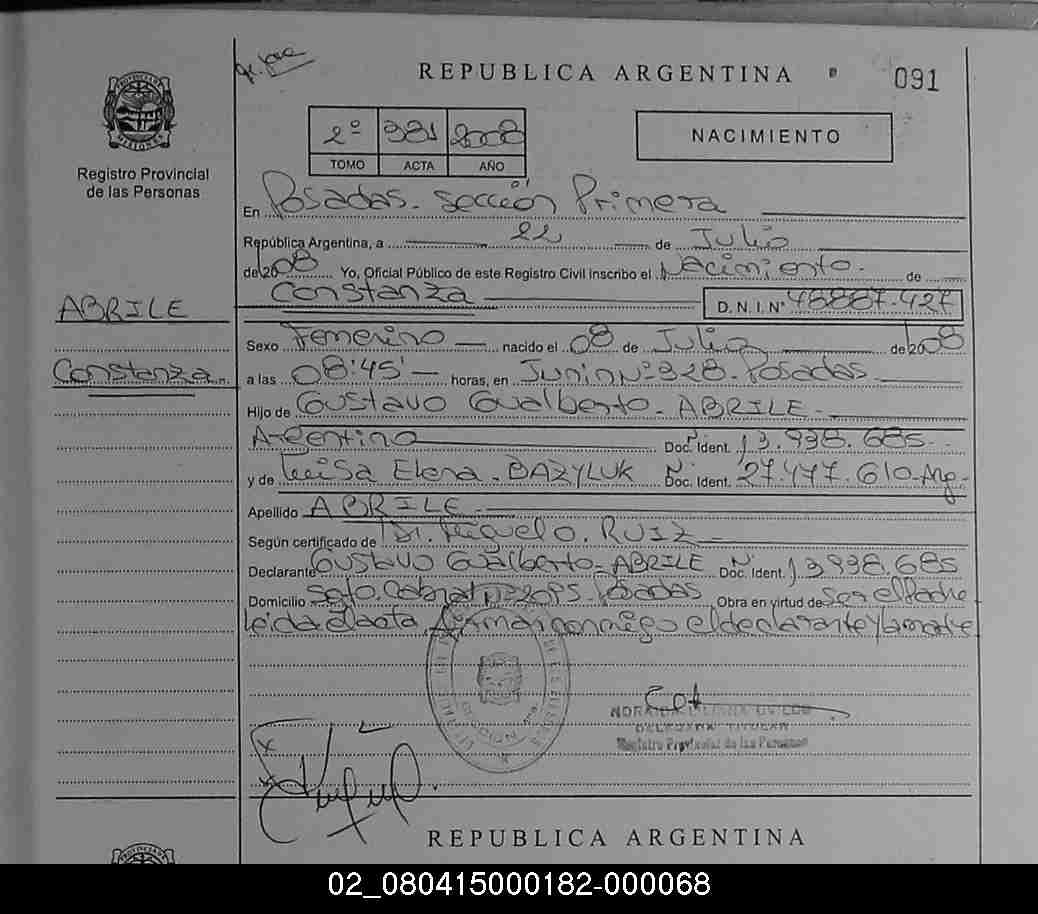 REPUBLICA ARGENTINA
091
PROVINCIA DE MISIONES
Registro Provincial
de las Personas
2º 381 2008
TOMO ACTA AÑO
NACIMIENTO
En Posadas. Sección Primera
República Argentina, a 22 de Julio
de 2008 Yo, Oficial Público de este Registro Civil inscribo el Nacimiento. de
Constanza D. N. I. Nº 48887.427
ABRILE
Constanza.
Sexo Femenino nacido el 08 de Julio de 2008
a las 08:45' horas, en Junin Nº 328. Posadas
Hijo de Gustavo Gualberto. ABRILE.
Argentino Doc. Ident. 13.938.685.
y de Luisa Elena. BAZYLUK Nº Doc. Ident. 27.477.610. Arg.
Apellido ABRILE
Según certificado de Dr. Miguel O. RUIZ
Declarante Gustavo Gualberto. ABRILE Nº Doc. Ident. 13.938.685
Domicilio Sgto. Cabral Nº 2095. Posadas Obra en virtud de ser el Padre
Leida el acta, firman conmigo el declarante y la madre
DELEGADA TITULAR
Registro Provincial de las Personas
REPUBLICA ARGENTINA
02_080415000182-000068